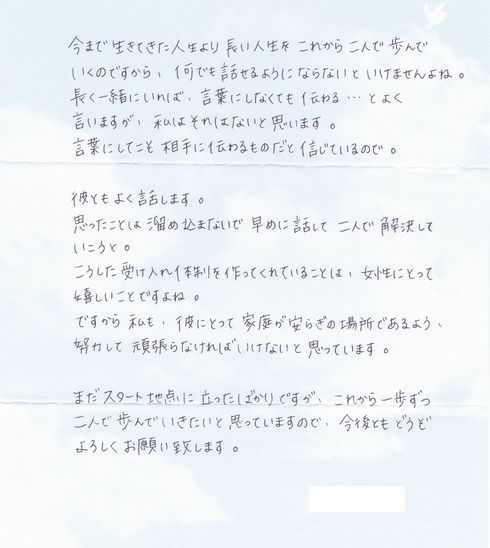 今まで生きてきた人生より長い人生をこれから二人で歩んで
いくのですから、何でも話せるようにならないといけませんよね。
長く一緒にいれば、言葉にしなくても伝わる…とよく
言いますが、私はそれはないと思います。
言葉にしてこそ相手に伝わるものだと信じているので。
彼ともよく話します。
思ったことは溜め込まないで早めに話して二人で解決して
いこうと。
こうした受け入れ体制を作ってくれていることは、女性にとって
嬉しいことですよね。
ですから私も、彼にとって家庭が安らぎの場所であるよう、
努力して頑張らなければいけないと思っています。
まだスタート地点に立ったばかりですが、これから一歩ずつ
二人で歩んでいきたいと思っていますので、今後ともどうぞ
よろしくお願い致します。